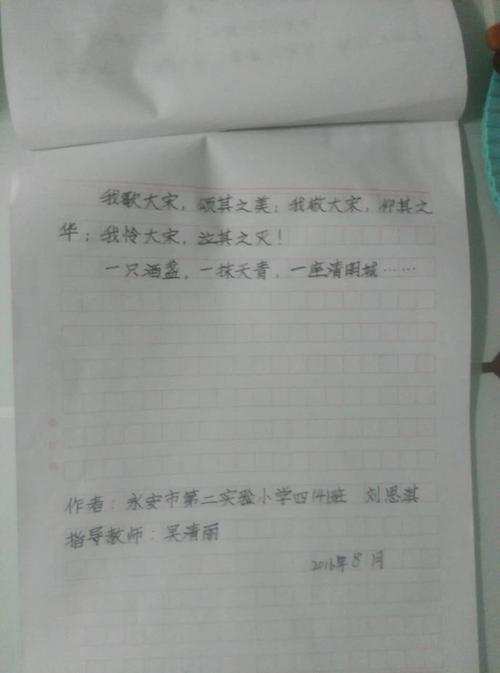 我歌大宋，颂其之美；我敬大宋，仰其之
华；我怜大宋，泣其之灭！
一只酒盏，一抹天青，一座清明城……
作者：永安市第二实验小学四(4)班 刘思淇
指导教师：吴清丽
2016年8月